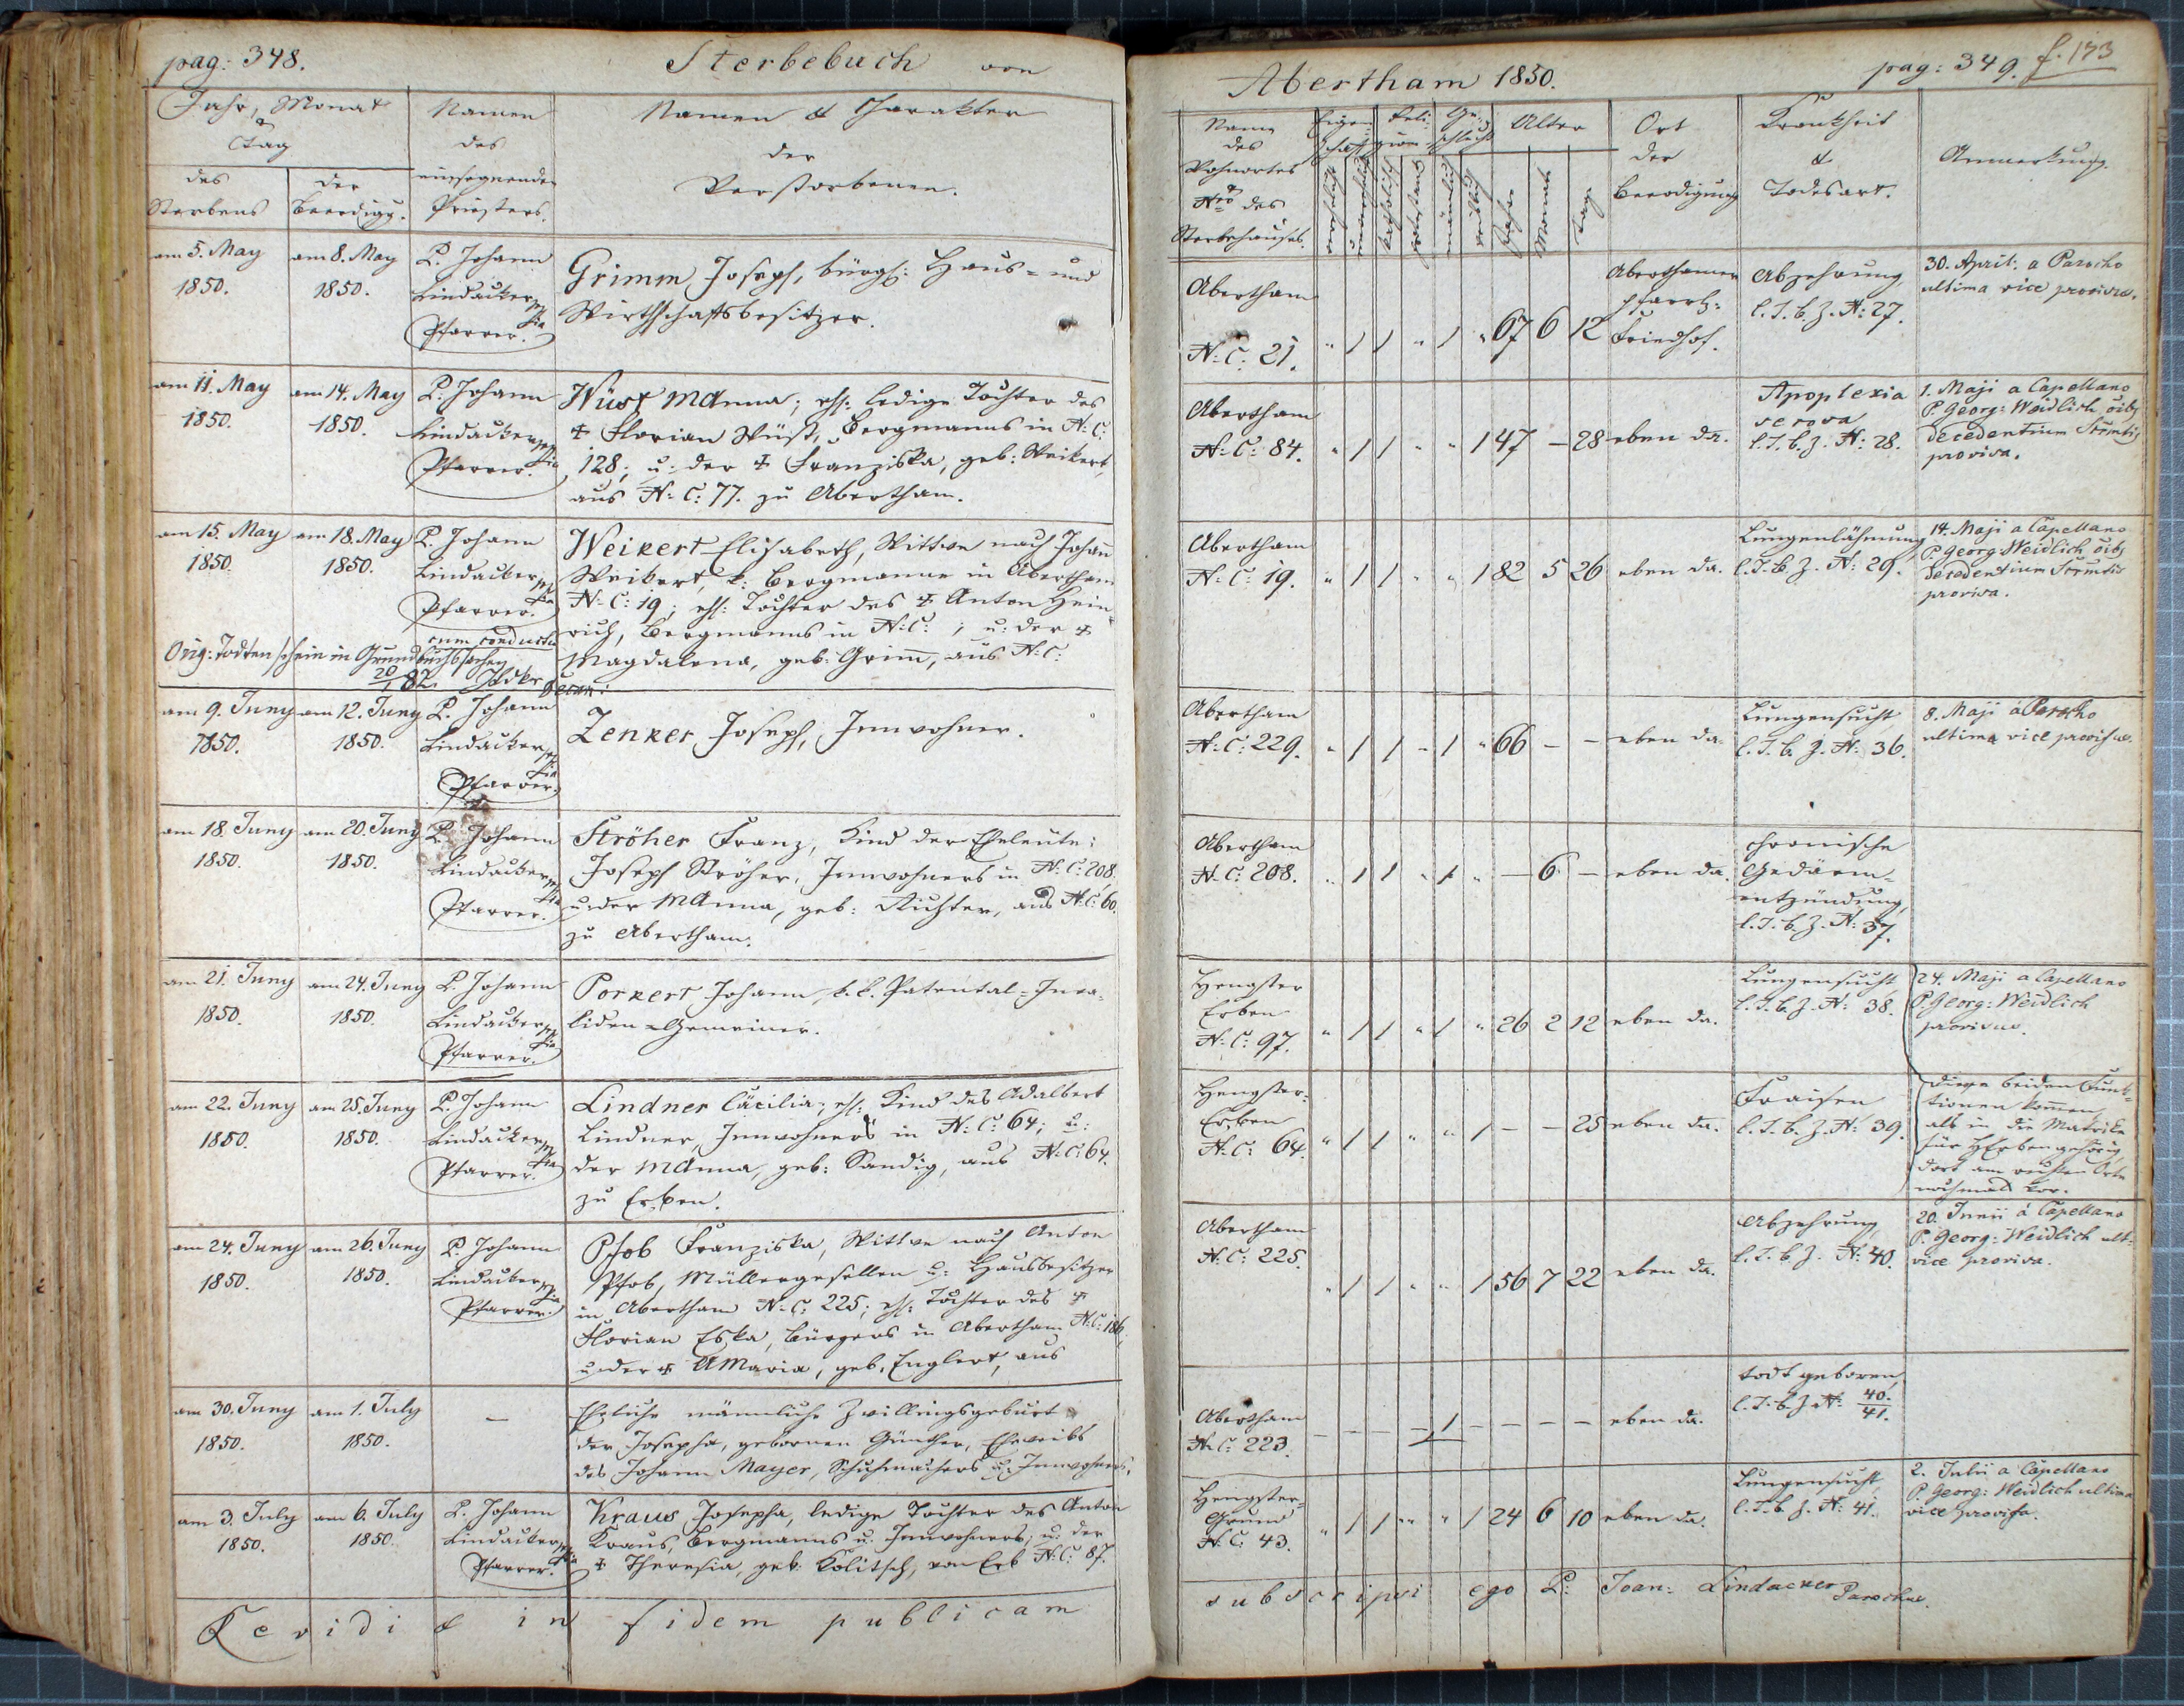 pag: 348.
Sterbebuch von
Jahr, Monat
&
Tag
des
Sterbens
der
Beerdigg.
Namen
des
einsegnenden
Priesters.
Namen & Charakter
der
Verstorbenen.
am 5. May
1850.
am 8. May
1850.
P. Johann
Lindacker
Pfarrer.
Grimm Joseph, bürgl: Haus- und
Wirthschaftsbesitzer.
am 11. May
1850.
am 14. May
1850.
P. Johann
Lindacker
Pfarrer.
Wüst MAnna; ehl: ledige Tochter des
† Florian Wüst, Bergmanns in N: C:
128; u: der † Franziska, geb: Weikert,
aus N: C: 77. zu Abertham.
am 15. May
1850.
am 18. May
1850.
P. Johann
Lindacker
Pfarrer.
cum conductu
Weikert Elisabeth, Wittwe nach Johann
Weikert, k: Bergmanne in Abertham
N: C: 19; ehl: Tochter des † Anton Hein-
rich, Bergmanns in N: C: ; u: der †
Magdalena, geb: Grimm, aus N: C:
Orig: Todtenschein in Grundbuchssachen
am 9. Juny
1850.
am 12. Juny
1850.
P. Johann
Lindacker
Pfarrer.
Zenker Joseph, Innwohner.
am 18. Juny
1850.
am 20. Juny
1850.
P. Johann
Lindacker
Pfarrer.
Ströher Franz, Kind der Eheleute:
Joseph Ströher, Innwohners in N: C: 208.
u: der MAnna, geb: Richter, aus N: C: 60.
zu Abertham.
am 21. Juny
1850.
am 24. Juny
1850.
P. Johann
Lindacker
Pfarrer.
Porkert Johann, k. k. Patental-Inva-
liden-Gemeiner.
am 22. Juny
1850.
am 25. Juny
1850.
P. Johann
Lindacker
Pfarrer.
Lindner Cäcilia; ehl: Kind des Adalbert
Lindner, Innwohners in N: C: 64; u:
der MAnna, geb: Sandig, aus N: C: 64.
zu Erben.
am 24. Juny
1850.
am 26. Juny
1850.
P. Johann
Lindacker
Pfarrer.
Pfob Franziska, Wittwe nach Anton
Pfob, Müllergesellen u: Hausbesitzer
in Abertham N: C: 225; ehl: Tochter des †
Florian Eska, Bürgers in Abertham N: C: 186,
u: der † AMaria, geb. Englert, aus
am 30. Juny
1850.
am 1. July
1850.
–
Eheliche männliche Zwillingsgeburt
der Josepha, gebornen Günther, Eheweibs
des Johann Mayer, Schuhmachers u: Innwohners.
am 3. July
1850.
am 6. July
1850.
P. Johann
Lindacker
Pfarrer.
Kraus Josepha, ledige Tochter des Anton
Kraus, Bergmanns u: Innwohners; u: der
† Theresia, geb: Kolitsch, von Erb N: C: 87.
Revidi & in fidem publicam
Abertham 1850.
pag: 349. f. 173
Name
des
Wohnortes
&
Nro des
Sterbehauses.
Eigen-
schaft
Reli-
gion
Ge-
schlecht
Alter
Jahre
Monate
Tage
Ort
der
Beerdigung
Krankheit
&
Todesart.
Anmerkung.
Abertham
N: C: 21.
" 1 1 " 1 " 67 6 12
Aberthamer
Pfarrl:
Friedhof.
Abzehrung,
l. T. b. Z. N: 27.
30. April: a Parocho
ultima vice provisus.
Abertham
N: C: 84.
" 1 1 " " 1 47 – 28 eben da.
Apoplexia
serosa
l. T. b. Z. N: 28.
1. Maji a Capellano
P. Georg: Weidlich oibs
decedentium Srmtis
provisa.
Abertham
N: C: 19.
" 1 1 " " 1 82 5 26 eben da.
Lungenlähmung
l. T. b. Z. N: 29.
14. Maji a Capellano
P. Georg: Weidlich oibs
decedentium Srmtis
provisa.
Abertham
N: C: 229.
" 1 1 " 1 " 66 – – eben da.
Lungensucht
l. T. b. Z. N: 36.
8. Maji a Parocho
ultima vice provisus.
Abertham
N: C: 208.
" 1 1 " 1 " – 6 – eben da.
chronische
Gedärm-
entzündung,
l. T. b. Z. N: 37.
Hengster
Erben
N: C: 97.
" 1 1 " 1 " 26 2 12 eben da.
Lungensucht
l. T. b. Z. N: 38.
24. Maji a Capellano
P. Georg: Weidlich
provisus.
Hengster-
Erben
N: C: 64.
" 1 1 " " 1 – – 25 eben da.
Fraisen
l. T. b. Z. N: 39.
Diese beiden Funk-
tionen kommen,
als in die Matrike
für HErben gehörig,
dort am rechten Orte
nochmals vor.
Abertham
N: C: 225.
" 1 1 " " 1 56 7 22 eben da.
Abzehrung,
l. T. b. Z. N: 40.
20. Junii a Capellano
P. Georg: Weidlich ult:
vice provisa.
Abertham
N: C: 223.
– – – – 1 – – – – eben da.
todt geboren,
l. T. b. Z. N: 40./41.
Hengster-
Grund
N: C: 43.
" 1 1 " " 1 24 6 10 eben da.
Lungensucht,
l. T. b. Z. N: 41.
2. Julii a Capellano
P. Georg: Weidlich ultima
vice provisa.
subscripsi ego P: Joan: Lindacker
Parochus.